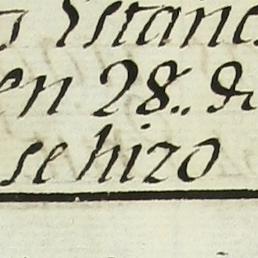 Estanc
en 28.. de
se hizo